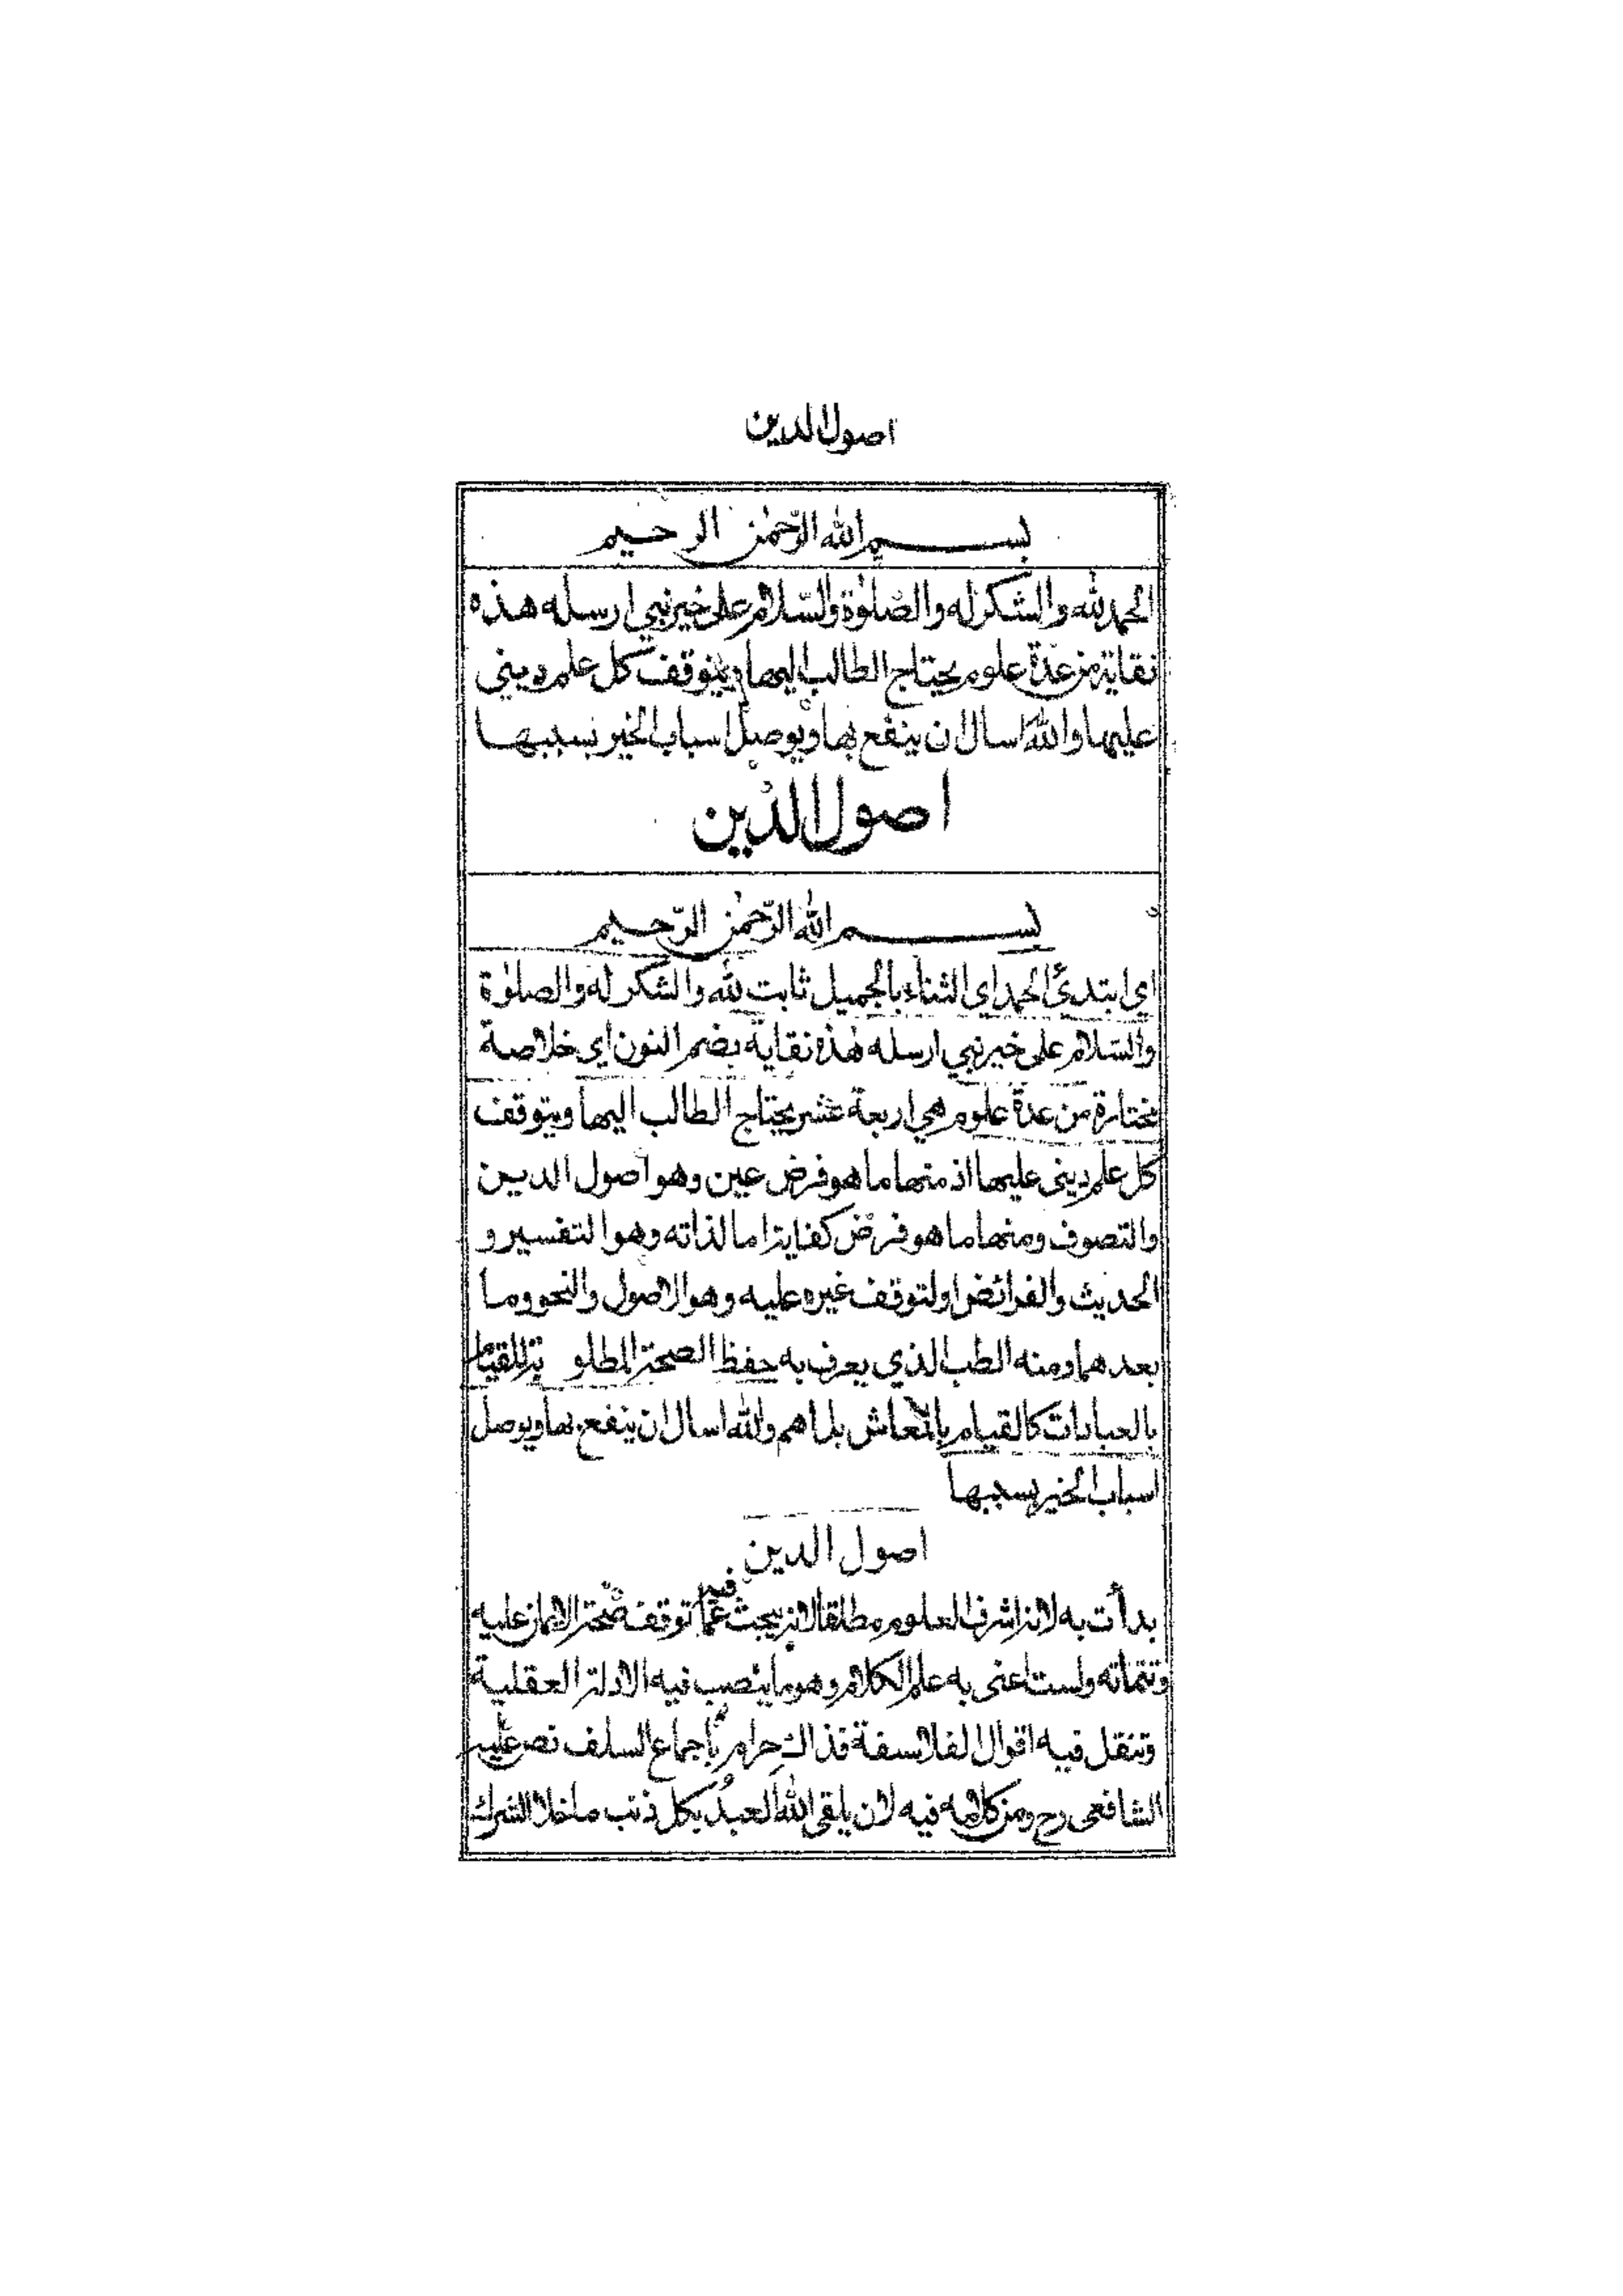 اصول الدين
بسم الله الرحمٰن الرحيم
الحمد لله والشكر له والصلٰوة والسّلام على خير نبي ارسله هذه
نقاية من عدة علوم يحتاج الطالب اليها ويتوقف كل علم ديني
عليها والله اسال ان ينفع بها ويوصل اسباب الخير بسببها
اصول الدين
بسم الله الرّحمٰن الرّحيم
اي ابتدئ الحمد اي الثناء بالجميل ثابت لله والشكر له والصلٰوة
والسّلام على خير نبي ارسله هٰذه نقاية بضم النون اي خلاصة
مختارة من عدة علوم هي اربعة عشر يحتاج الطالب اليها ويتوقف
كل علم ديني عليها اذ منها ما هو فرض عين وهو اصول الدين
والتصوف ومنها ما هو فرض كفاية اما لذاته وهو التفسير و
الحديث والفرائض او لتوقف غيره عليه وهو الاصول والنحو وما
بعدهما ومنه الطب الذي يعرف به حفظ الصحة المطلو بة للقيام
بالعبادات كالقيام بالمعاش بل اهم والله اسال ان ينفع بها ويوصل
اسباب الخير بسببها
اصول الدين
بدأت به لانه اشرف العلوم مطلقا لانه يبحث عما توقف صحة الايمان عليه
وتتماته ولست اعنى به علم الكلام وهو ما ينصب فيه الادلة العقلية
وتنقل فيه اقوال الفلاسفة فذاك حرام باجماع السلف نص عليه
الشافعى رح ومن كلامه فيه لان يلقى الله العبدُ بكل ذنب ما خلا الشرك